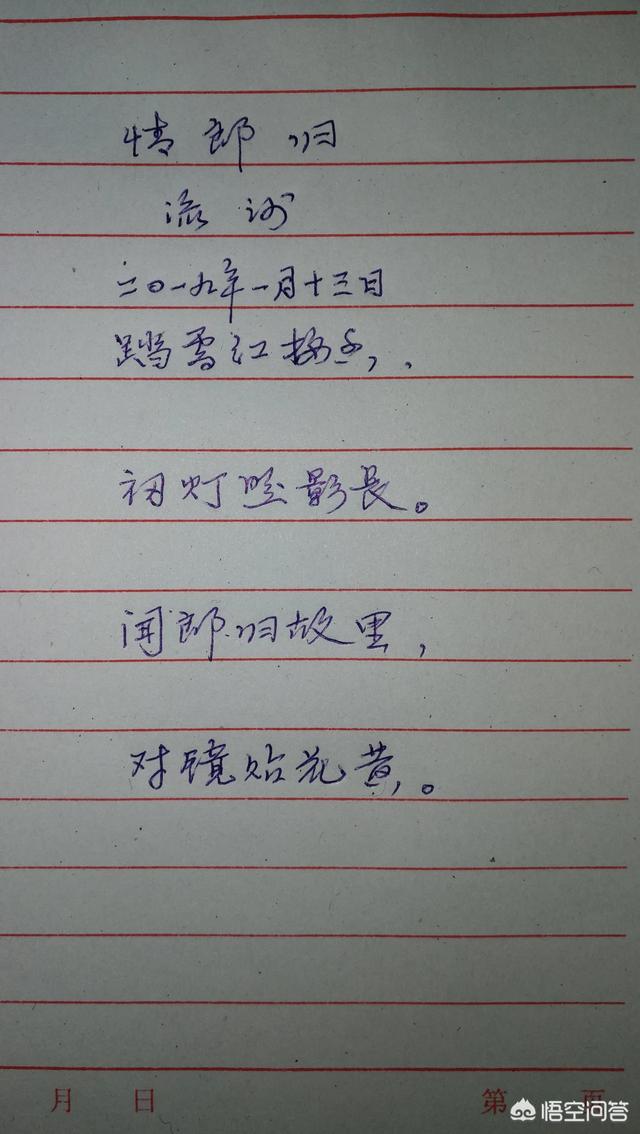 情郎归
流沙
二〇一九年一月十三日
踏雪红梅
初灯照影长。
闻郎归故里,
对镜贴花黄。
月 日 第 页
悟空问答